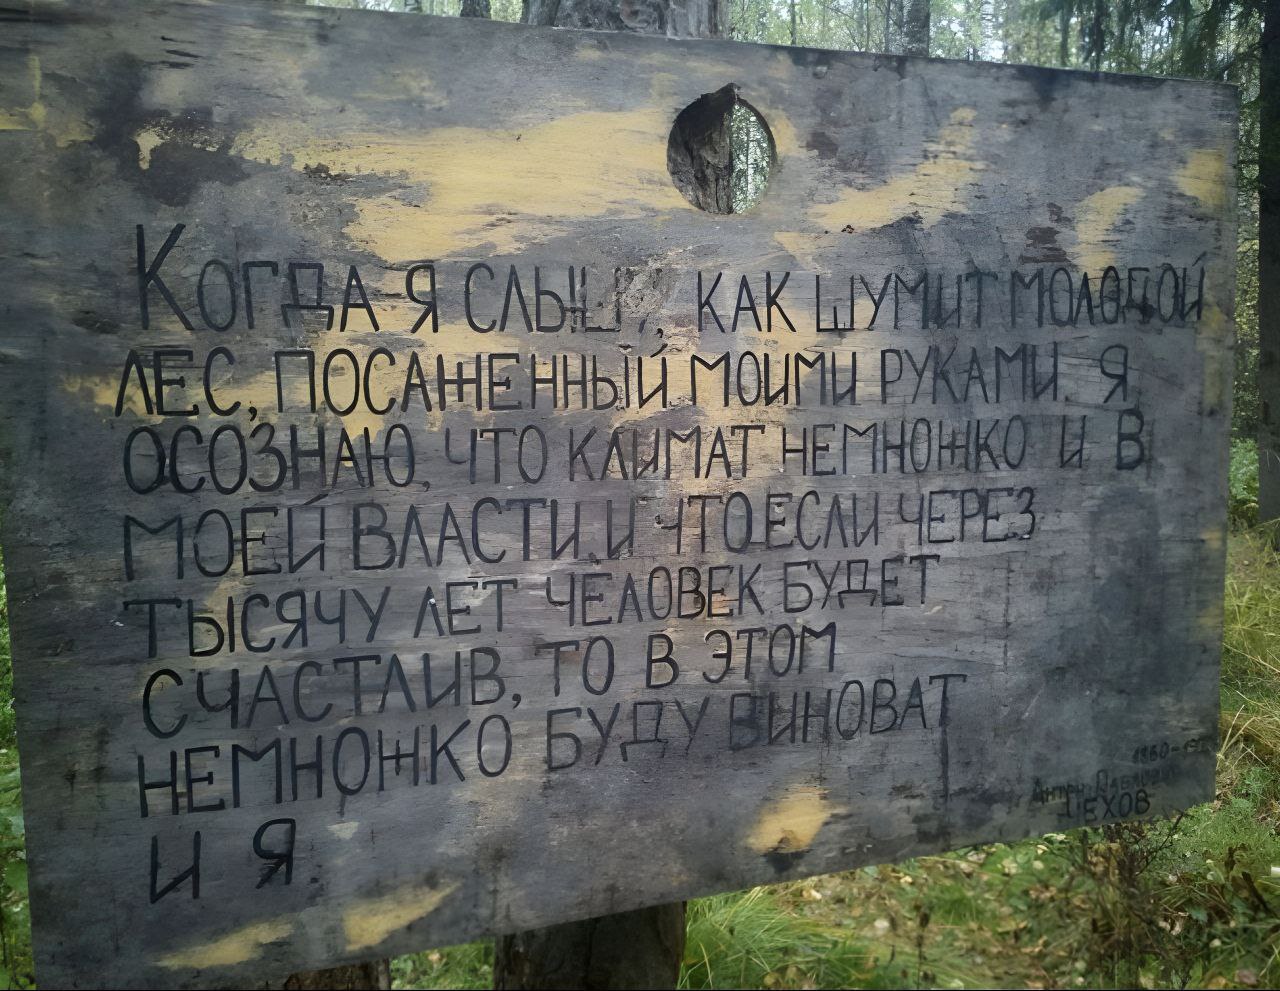 Когда я слышу, как шумит молодой
лес, посаженный моими руками. Я
осознаю, что климат немножко и в
моей власти. и что если через
тысячу лет человек будет
счастлив, то в этом
немножко буду виноват
и я.
Антон Павлович
Чехов